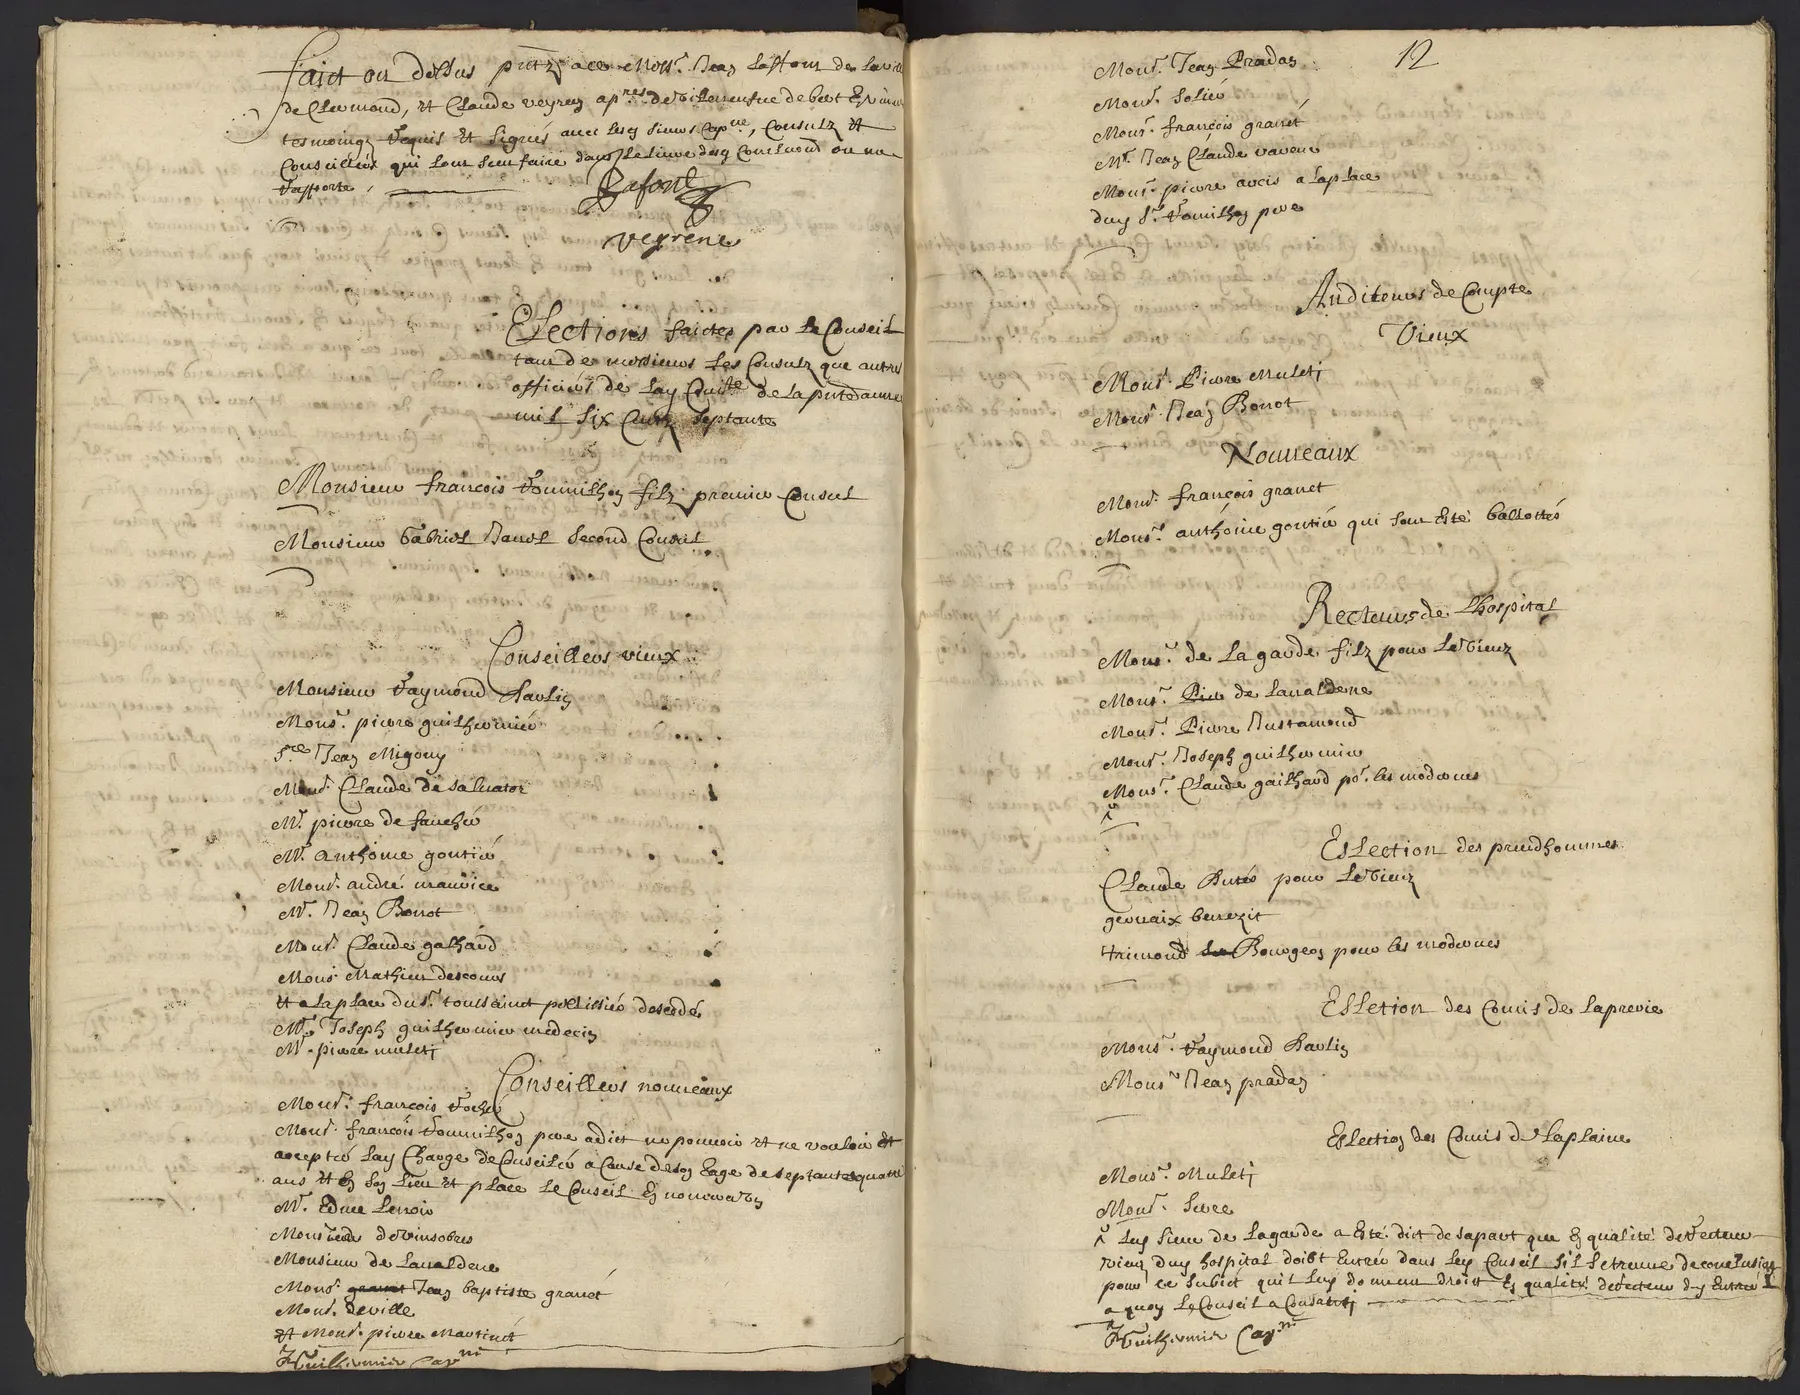 faict ou dessus presens a ce Mons.r Jean Laffont de la ville
de Clermond, et Claude veyren ap.res de villeneufve de bert Esvin
tesmoings requis et signés avec lesd sieurs cap.ne, Consulz et
Conseilliers qui sont
rapporte.
Lafont
veyrene
Ellections faictes par le Conseil
tant de messieurs les Consulz que autres
officiers de lad Com.te de la pnte année
mil six Centz septante
Monsieur françois Roumilhon filz premier Consul
Monsieur Gabriel Banel second Consul
Conseillers vieux
Monsieur Raymond Paulin
Mons.r pierre guilhermier
S.re Jean Migony
Mons.r Claude de salvator
M.r pierre de fauchier
M.r anthoine goutier
Mons.r andré maurice
M.r Jean Bonot
Mons.r Claude galhard
Mons.r Mathieu descours
et a la place du s.r toussainct pellissier desedé
M.r Joseph guilhermier medecin
M.r pierre muletj
Conseillers nouveaux
Mons.r françois Rochier
Mons.r françois Roumilhon pere a dict ne pouvoir et ne vouloir et
accepter lad Charge de Conseilier a Cause de son Eage de septante quatre
ans et En son lieu et place le Conseil En nommera Un
M.r Edme Lenoir
Monsieur de vinsobres
Monsieur de Lavaldene
Mons.r granet Jean baptiste granet
Mons.r deville
et Mons.r pierre Martinet
Guilhermier Cap.ne
12
Mons.r Jean Pradan
Mons.r solier
Mons.r françois granet
M.r Jean Claude vavene
Mons.r pierre avcis a la place
dud S.r Roumilhon pere
Auditeurs de Compte
Vieux
Mons.r Pierre Muletj
Mons.r Jean Bonot
Nouveaux
Mons.r françois granet
Mons.r anthoine goutier qui sont Esté ballottés
Recteurs de Lhospital
Mons.r de La garde filz pour Le vieux
Mons.r Pier de Lavaldene
Mons.r Pierre Justamond
Mons.r Joseph guilhermier
Mons.r Claude gailhard po.r les modernes
Eslection des preudhommes
Claude Butés pour Le vieux
gervaix benezit
trimond Bourgeon pour les modernes
Esletion des Comis de la previe
Mons.r Raymond Paulin
Mons.r Jean pradan
Eslection des Comis de la plaine
Mons.r Muletj
Mons.r serre
Led sieur de Lagarde a Esté dict de sa part que En qualité de Recteur
vieux dud hospital doibt Entrer dans led Conseil sil se treuve de conclusion
pour ce subiect quil luy donnent droict En qualité de recteur dy Entrer
a quoy Le Conseil a Consantj
Guilhermier Cap.ne